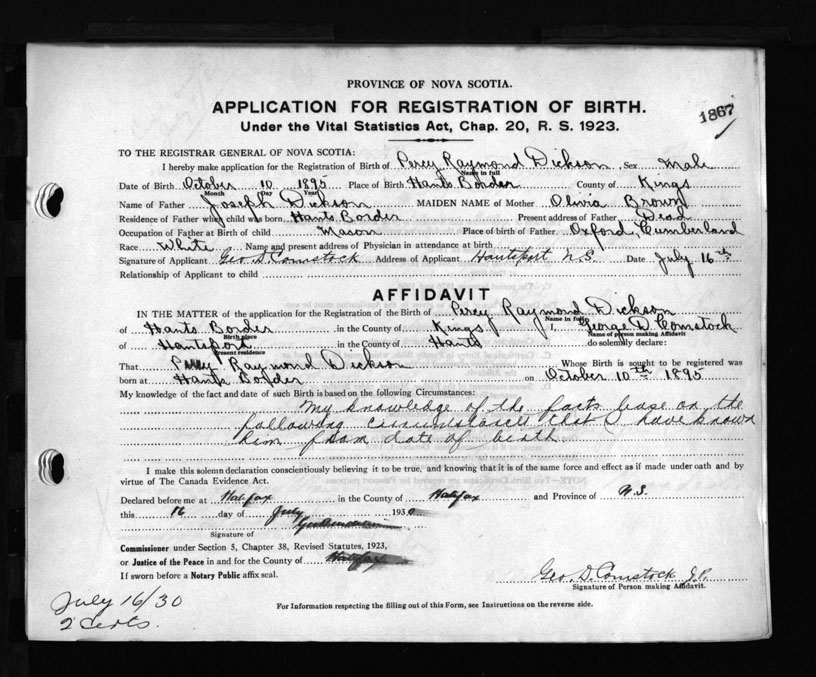 PROVINCE OF NOVA SCOTIA.
APPLICATION FOR REGISTRATION OF BIRTH.
1867
Under the Vital Statistics Act, Chap. 20, R. S. 1923.
TO THE REGISTRAR GENERAL OF NOVA SCOTIA:
I hereby make application for the Registration of Birth of Percy Raymond Dickson Sex Male
Name in full
Date of Birth October 10 1895 Place of Birth Hants Border County of Kings
Month Day Year
Name of Father Joseph Dickson MAIDEN NAME of Mother Olivia Brown
Residence of Father when child was born Hants Border Present address of Father Dead
Occupation of Father at Birth of child Mason Place of birth of Father Oxford, Cumberland
Race White Name and present address of Physician in attendance at birth
Signature of Applicant Geo. D. Comstock Address of Applicant Hantsport N.S. Date July 16th
Relationship of Applicant to child
AFFIDAVIT
IN THE MATTER of the application for the Registration of the Birth of Percy Raymond Dickson
Name in full
of Hants Border in the County of Kings I, George D. Comstock
Birth place Name of person making affidavit
of Hantsport in the County of Hants do solemnly declare:
Present residence
That Percy Raymond Dickson Whose Birth is sought to be registered was
born at Hants Border on October 10th 1895
My knowledge of the fact and date of such Birth is based on the following Circumstances:
My knowledge of the facts base on the
following circumstances that I have known
him from date of birth
I make this solemn declaration conscientiously believing it to be true, and knowing that it is of the same force and effect as if made under oath and by
virtue of The Canada Evidence Act.
Declared before me at Halifax in the County of Halifax and Province of N.S.
this 16 day of July 1930
Signature of
Commissioner under Section 5, Chapter 38, Revised Statutes, 1923,
or Justice of the Peace in and for the County of Halifax
If sworn before a Notary Public affix seal.
Geo. D. Comstock J.P.
Signature of Person making Affidavit.
For Information respecting the filling out of this Form, see Instructions on the reverse side.
July 16/30
2 Certs.